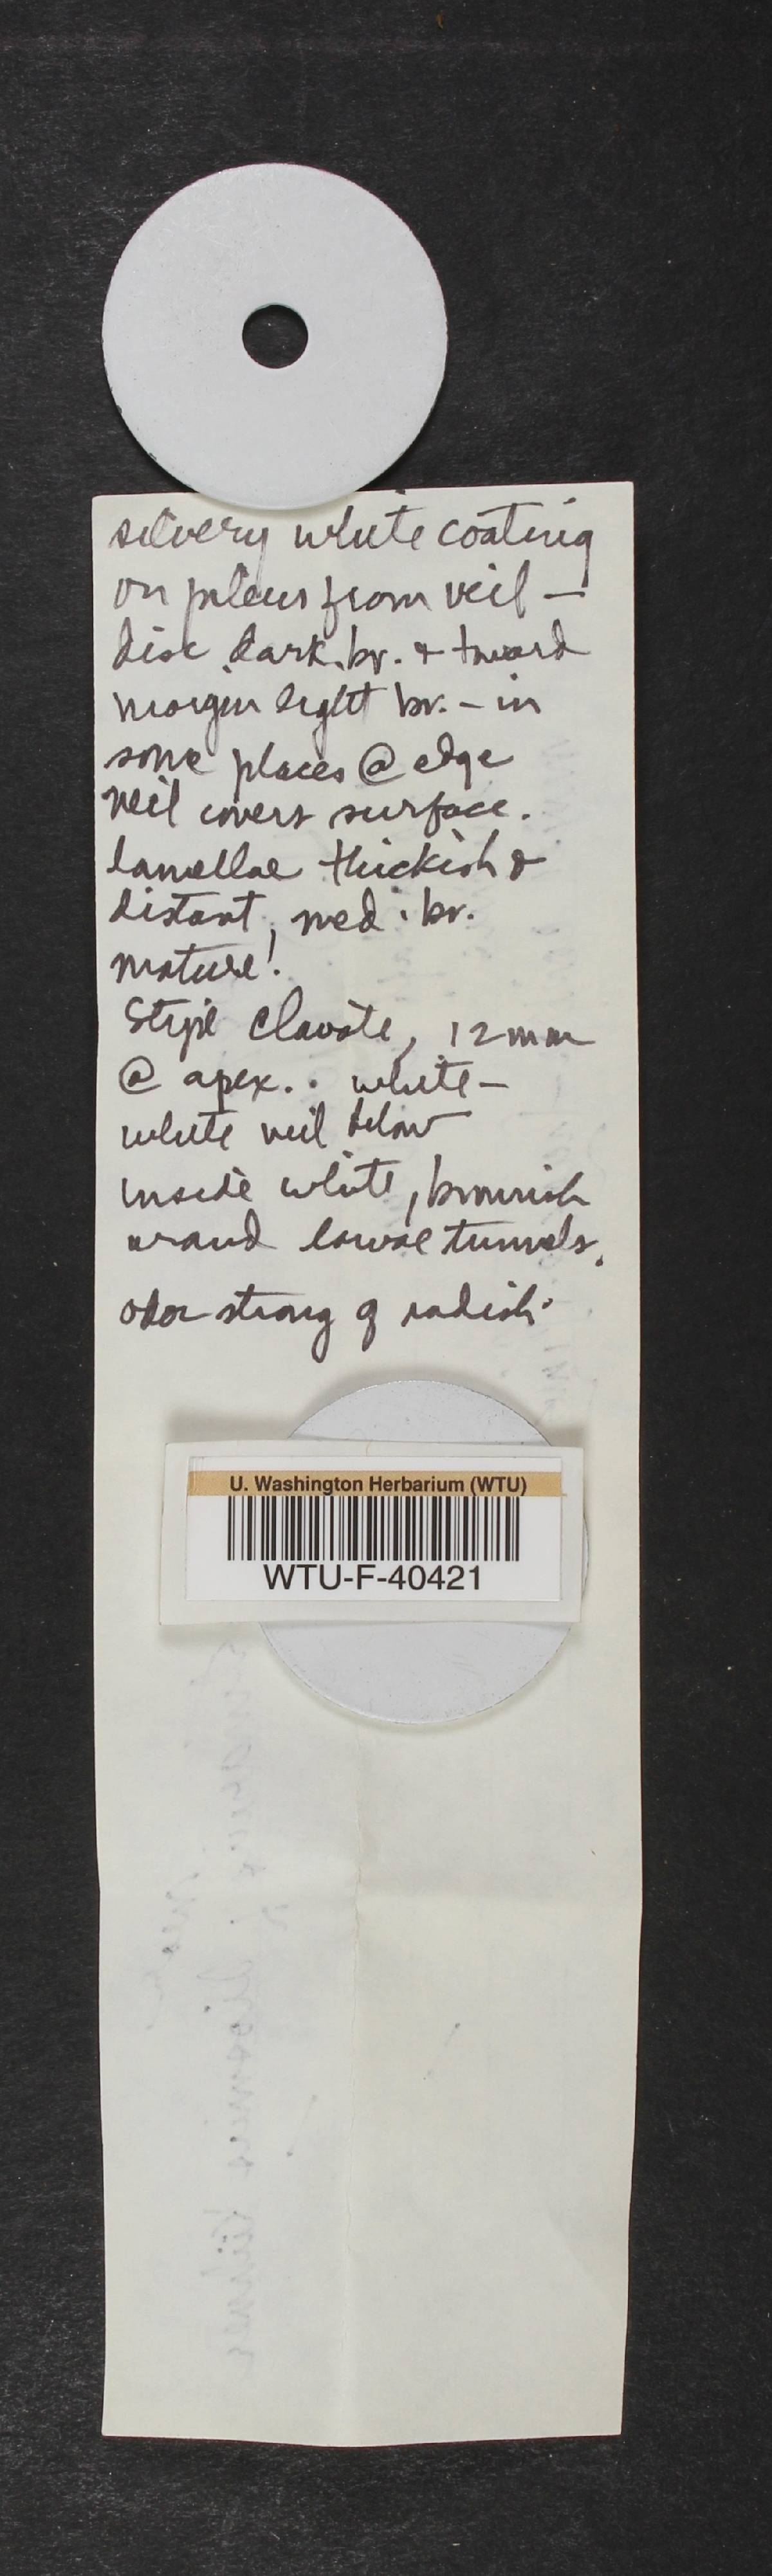 silvery white coating
on pileus from veil –
disc dark. br. & toward
margin light br. – in
some places @ edge
veil covers surface.
lamellae thickish &
distant, med. br.
mature!
Stipe clavate, 12 mm
@ apex.. white –
white veil below
inside white, brownish
around larvae tunnels.
odor strong of radish.
U. Washington Herbarium (WTU)
WTU-F-40421